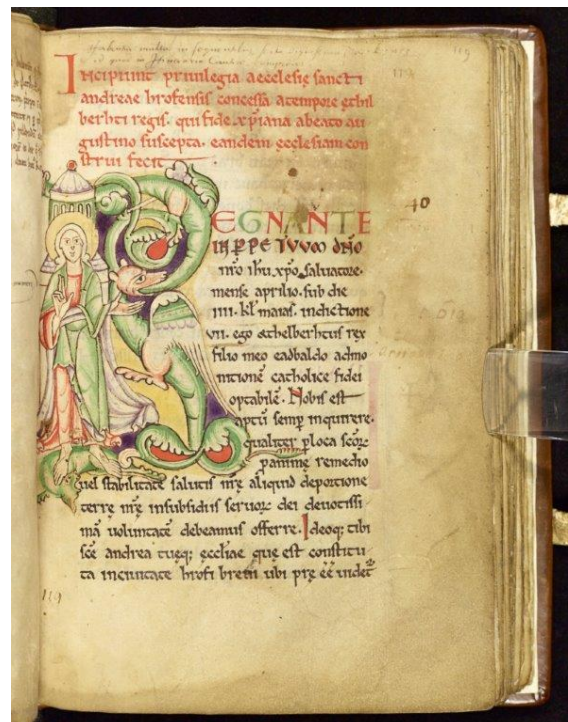 Incipiunt priuilegia aecclesię sancti
andreae hrofensis concessa a tempore ęthil
berhti regis. qui fide xp̄iana a beato au
gustino suscepta. eandem ęcclesiam con
strui fecit
REGNANTE
IN PERPETUUM DN̄O
nr̄o ihū xp̄o saluatore.
mense aprilio. sub die
iiii. kl̄ maias. indictione
vii. ego æthelberhtus rex
filio meo eadbaldo admo
nitionē catholice fidei
optabilē. Nobis est
aptū semp̄ inquirere.
qualiter p loca scōꝝ
p animę remedio
uel stabilitate salutis nr̄ę aliquid de portione
terrę nr̄ę in subsidiis seruoꝝ dei deuotissi
mā uoluntatē debeamus offerre. Ideoq; tibi
sc̄e andrea tuęq; ęccl̄iae que est constitu
ta in ciuitate hrofi breui ubi pręēē uidet᷑
40
119
119